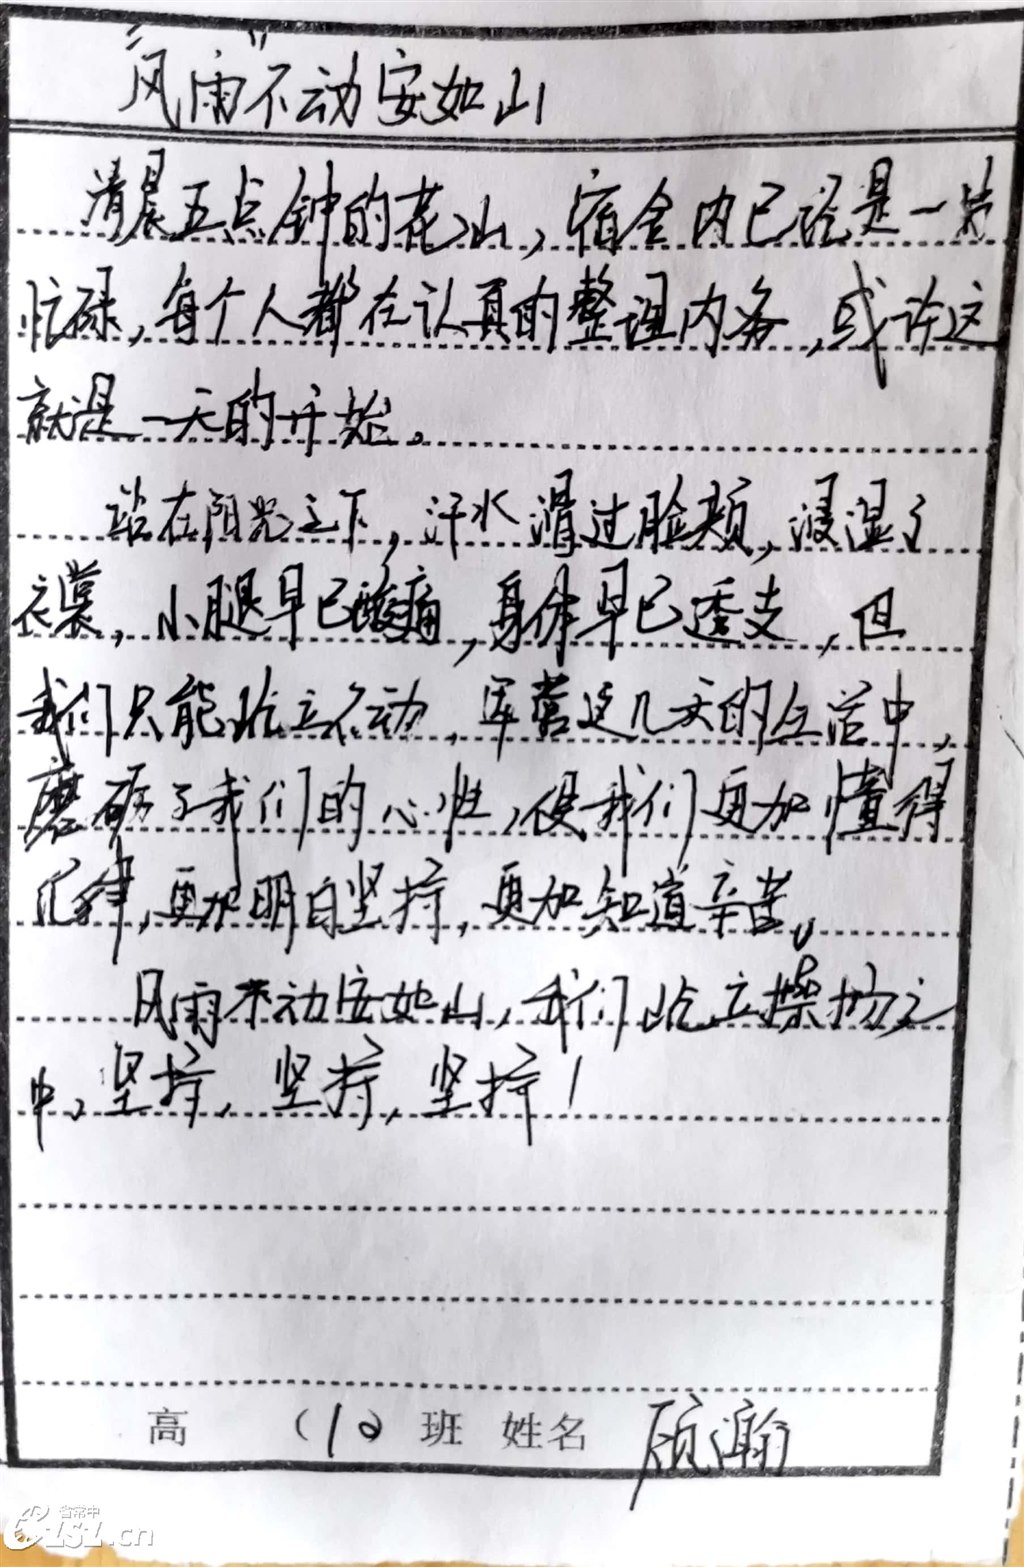 “风雨”不动安如山
清晨五点钟的花山，宿舍内已经是一片
忙碌，每个人都在认真的整理内务，或许这
就是一天的开始。
站在阳光之下，汗水滑过脸颊，浸湿了
衣裳，小腿早已酸痛，身体早已透支，但
我们只能站立不动，军营这几天的生活中，
磨砺了我们的心性，使我们更加懂得
纪律，更加明白坚持，更加知道辛苦。
风雨不动安如山，我们站立操场之
中，坚持，坚持，坚持！
高 （12 班 姓名 顾瀚
省常中
CZSZ.cn